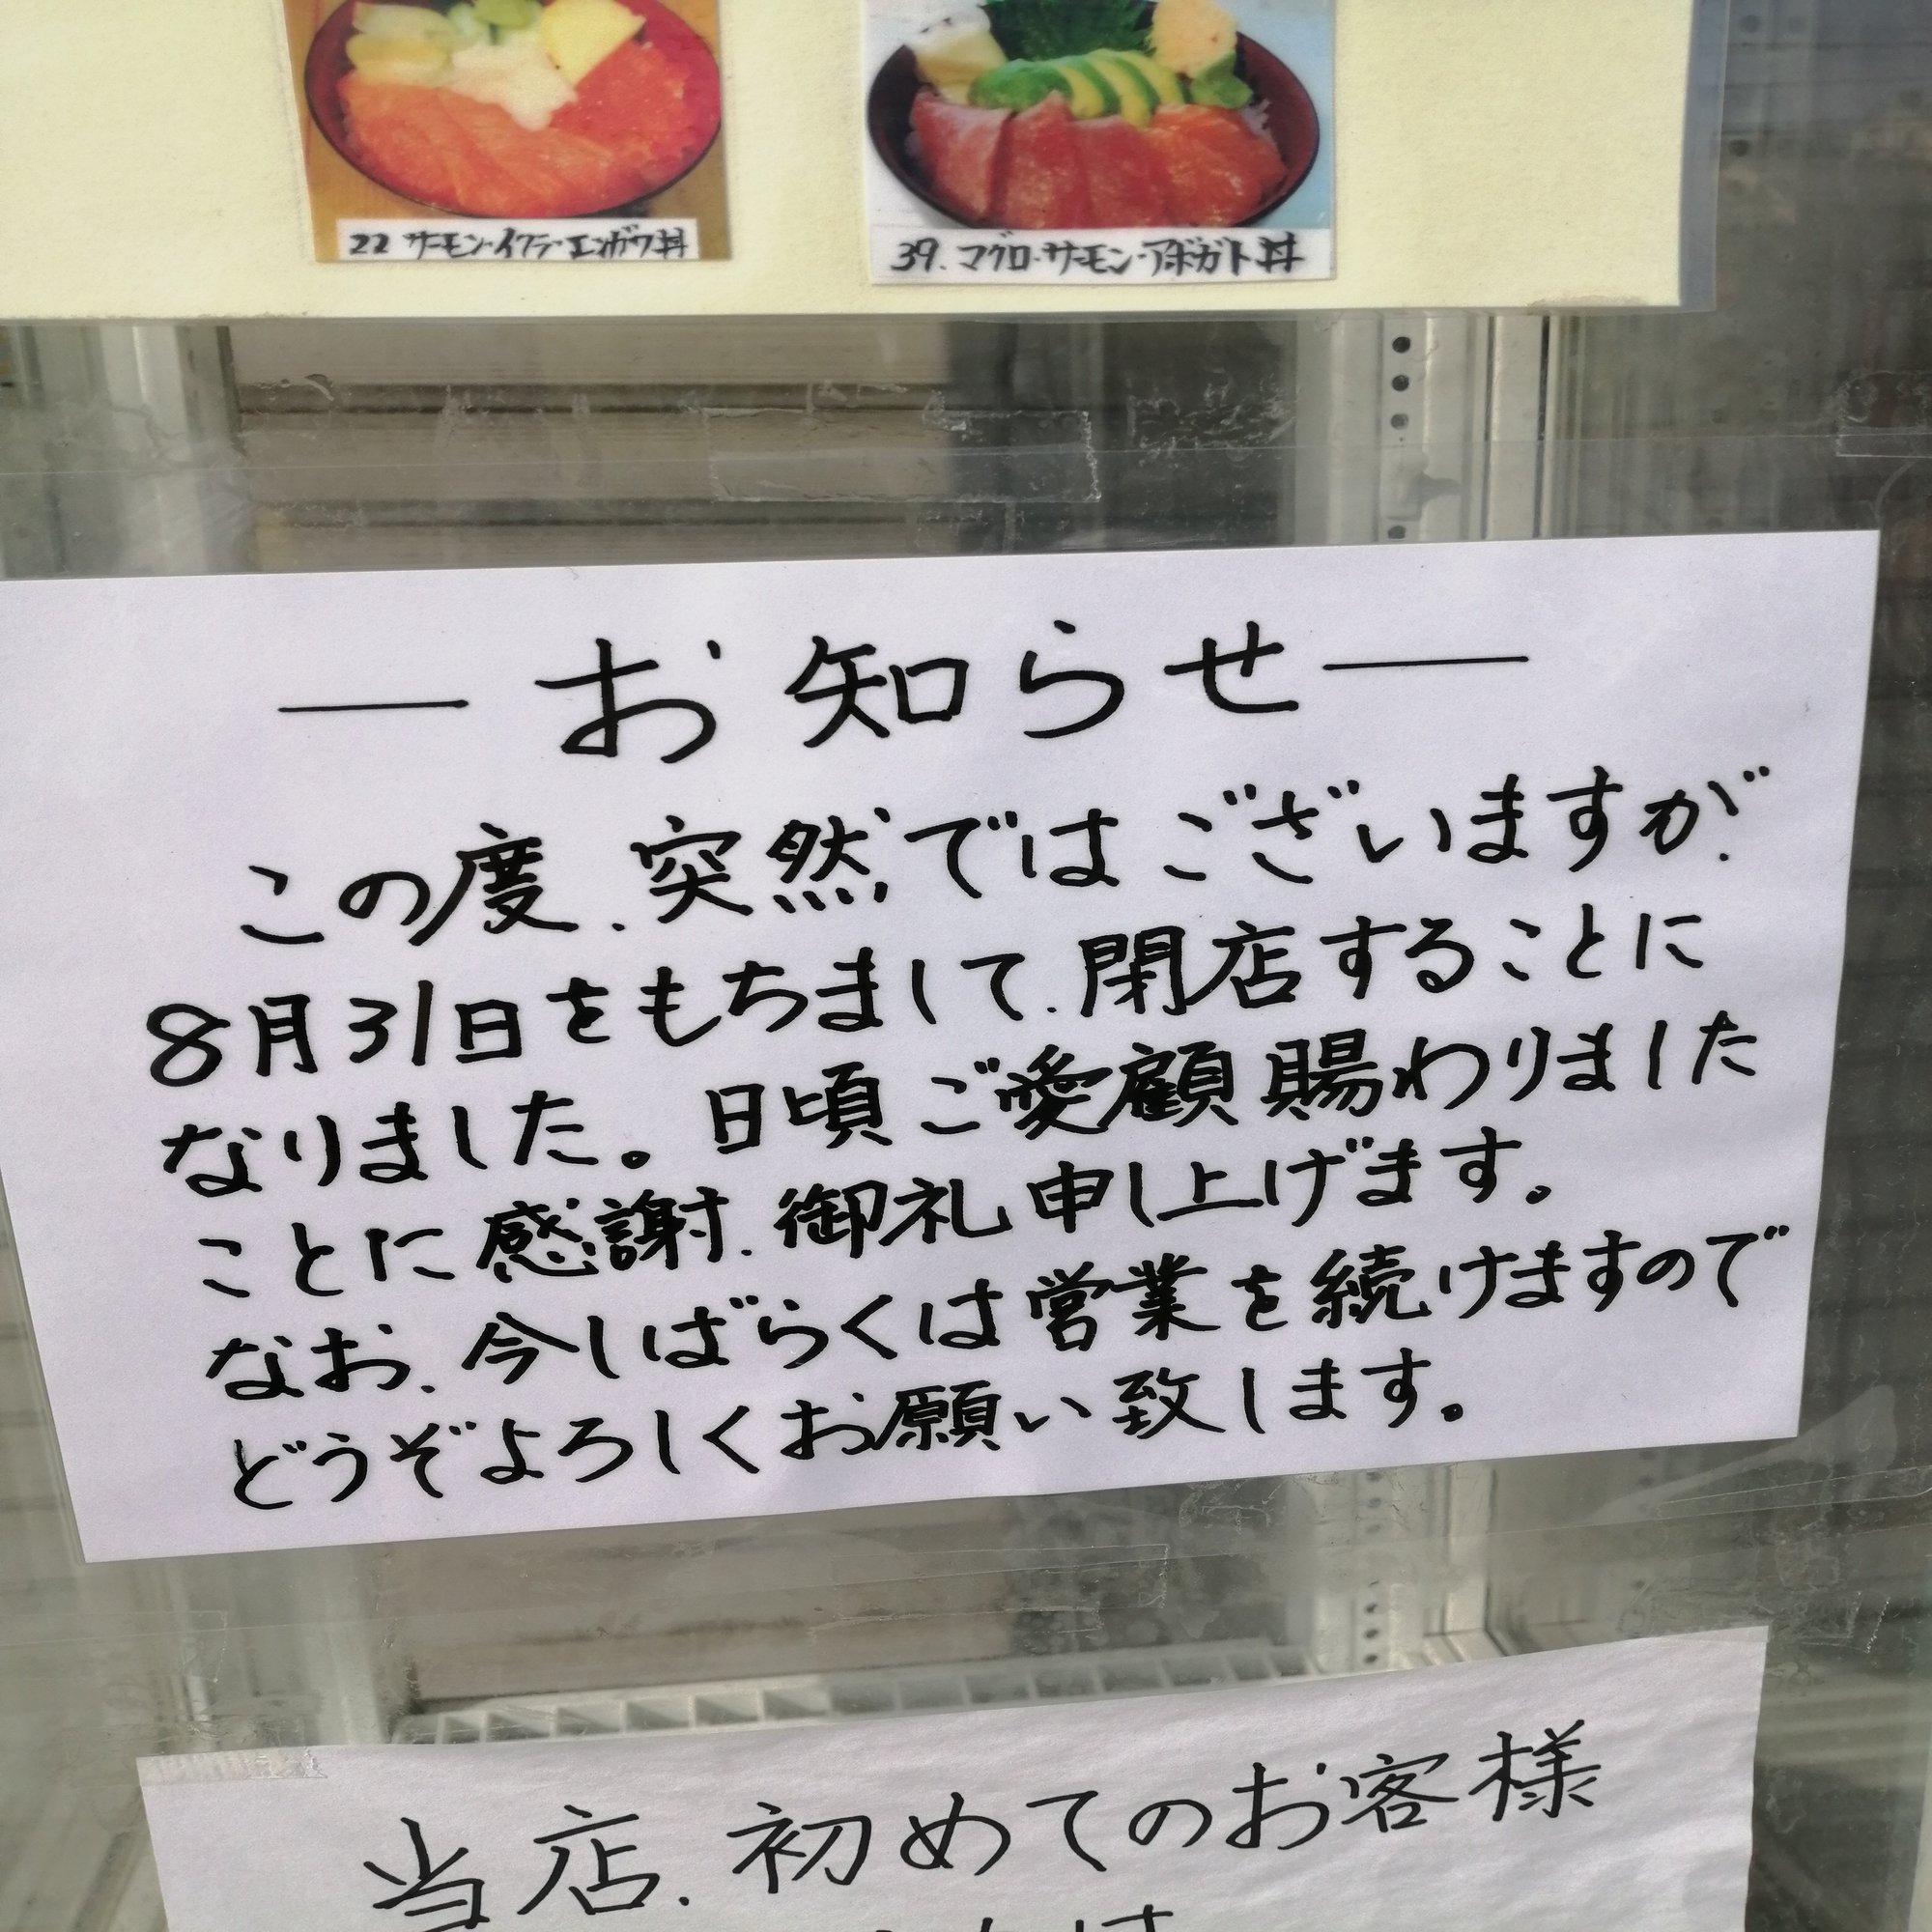 22 サーモン・イクラ・エンガワ丼
39. マグロ・サーモン・アボガト丼
― お知らせ ―
この度、突然ではございますが、
8月31日をもちまして、閉店することに
なりました。日頃ご愛顧賜わりました
ことに感謝、御礼申し上げます。
なお、今しばらくは営業を続けますので
どうぞよろしくお願い致します。
当店、初めてのお客様